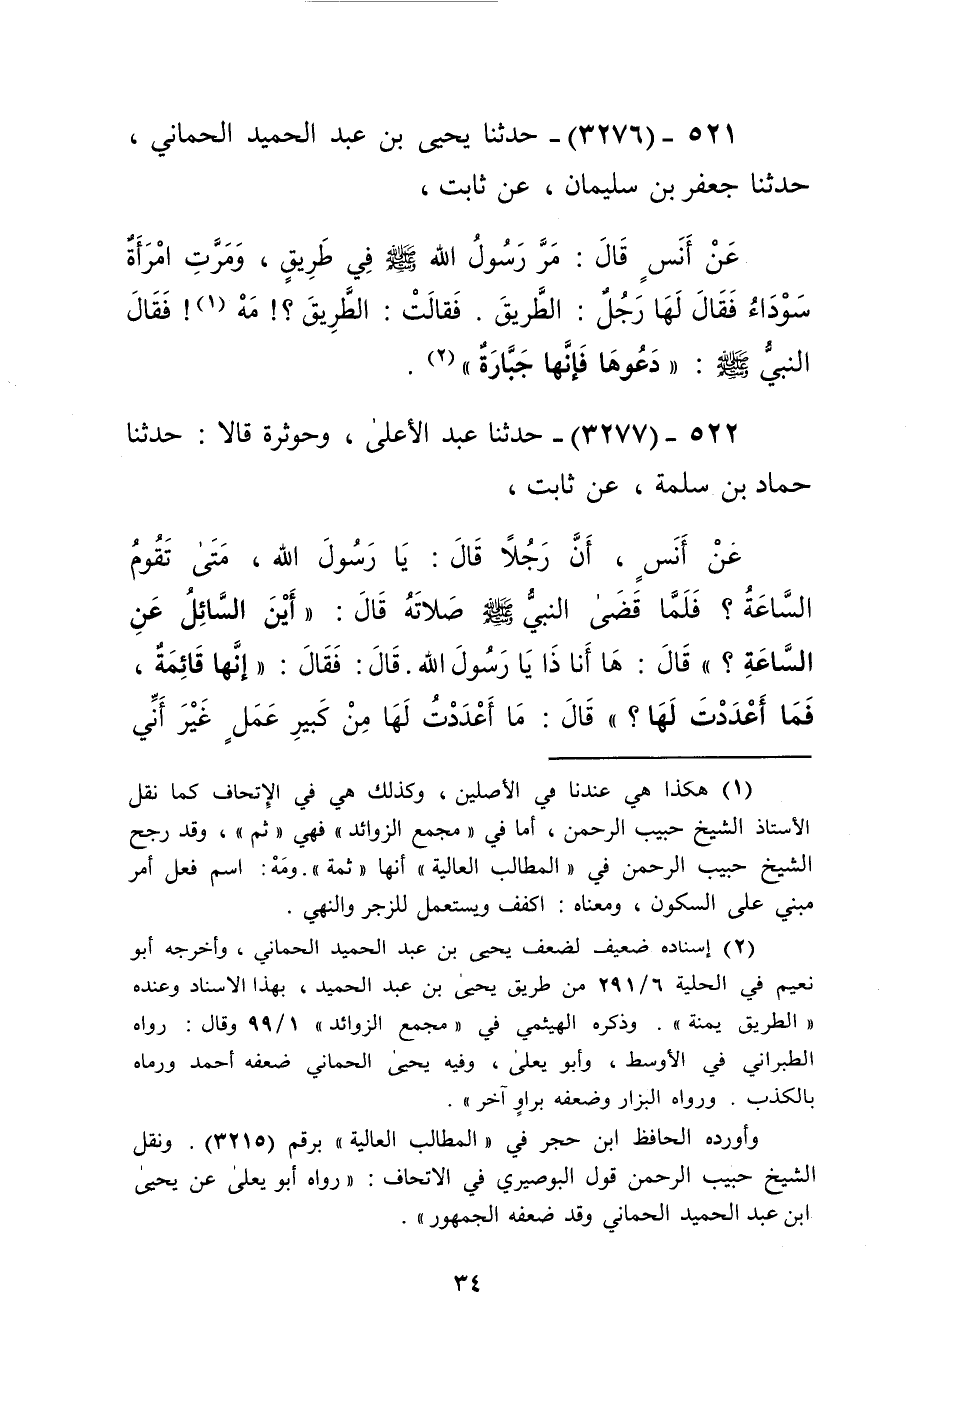 ٥٢١ ـ (٣٢٧٦)ـ حدثنا يحيى بن عبد الحميد الحماني ،
حدثنا جعفر بن سليمان ، عن ثابت ،
عَنْ أَنَسٍ قَالَ : مَرَّ رَسُولُ الله ﷺ فِي طَرِيقٍ ، وَمَرَّتِ امْرَأَةٌ
سَوْدَاءُ فَقَالَ لَهَا رَجُلٌ : الطَّرِيقَ . فَقالَتْ : الطَّرِيقَ ؟! مَهْ (١)! فَقَالَ
النبيُّ ﷺ : « دَعُوهَا فَإِنَّها جَبَّارَةٌ » (٢) .
٥٢٢ ـ (٣٢٧٧)ـ حدثنا عبد الأعلىٰ ، وحوثرة قالا : حدثنا
حماد بن سلمة ، عن ثابت ،
عَنْ أَنَسٍ ، أَنَّ رَجُلاً قَالَ : يَا رَسُولَ الله ، مَتَىٰ تَقُومُ
السَّاعَةُ ؟ فَلَمَّا قَضَىٰ النبيُّ ﷺ صَلاتَهُ قَالَ : « أَيْنَ السَّائِلُ عَنِ
السَّاعَةِ ؟ » قَالَ : هَا أَنا ذَا يَا رَسُولَ الله . قَالَ : فَقَالَ : « إِنَّها قَائِمَةٌ ،
فَمَا أَعْدَدْتَ لَهَا ؟ » قَالَ : مَا أَعْدَدْتُ لَهَا مِنْ كَبِيرِ عَمَلٍ غَيْرَ أَنِّي
(١) هكذا هي عندنا في الأصلين ، وكذلك هي في الإتحاف كما نقل
الأستاذ الشيخ حبيب الرحمن ، أما في « مجمع الزوائد » فهي « ثم » ، وقد رجح
الشيخ حبيب الرحمن في « المطالب العالية » أنها « ثمة » . ومَهْ : اسم فعل أمر
مبني على السكون ، ومعناه : اكفف ويستعمل للزجر والنهي .
(٢) إسناده ضعيف لضعف يحيى بن عبد الحميد الحماني ، وأخرجه أبو
نعيم في الحلية ٢٩١/٦ من طريق يحيىٰ بن عبد الحميد ، بهذا الاسناد وعنده
« الطريق يمنة » . وذكره الهيثمي في « مجمع الزوائد » ٩٩/١ وقال : رواه
الطبراني في الأوسط ، وأبو يعلىٰ ، وفيه يحيىٰ الحماني ضعفه أحمد ورماه
بالكذب . ورواه البزار وضعفه براوٍ آخر » .
وأورده الحافظ ابن حجر في « المطالب العالية » برقم (٣٢١٥) . ونقل
الشيخ حبيب الرحمن قول البوصيري في الاتحاف : « رواه أبو يعلىٰ عن يحيىٰ
ابن عبد الحميد الحماني وقد ضعفه الجمهور » .
٣٤